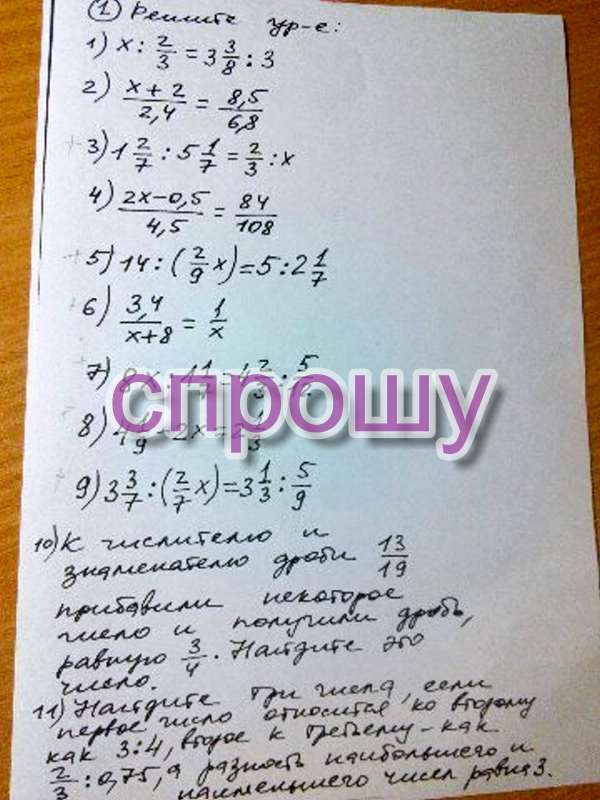 ① Решите ур-е:
1) x : 2/3 = 3 3/8 : 3
2) (x + 2)/2,4 = 8,5/6,8
3) 1 2/7 : 5 1/7 = 2/3 : x
4) (2x − 0,5)/4,5 = 84/108
5) 14 : (2/9 x) = 5 : 2 1/7
6) 3,4/(x+8) = 1/x
7) 8x
спрошу
8)
9) 3 3/7 : (2/7 x) = 3 1/3 : 5/9
10) К числителю и
знаменателю дроби 13/19
прибавили некоторое
число и получили дробь,
равную 3/4. Найдите это
число.
11) Найдите три числа, если
первое число относится ко второму
как 3:4, второе к третьему – как
2/3 : 0,75, а разность наибольшего и
наименьшего чисел равна 3.